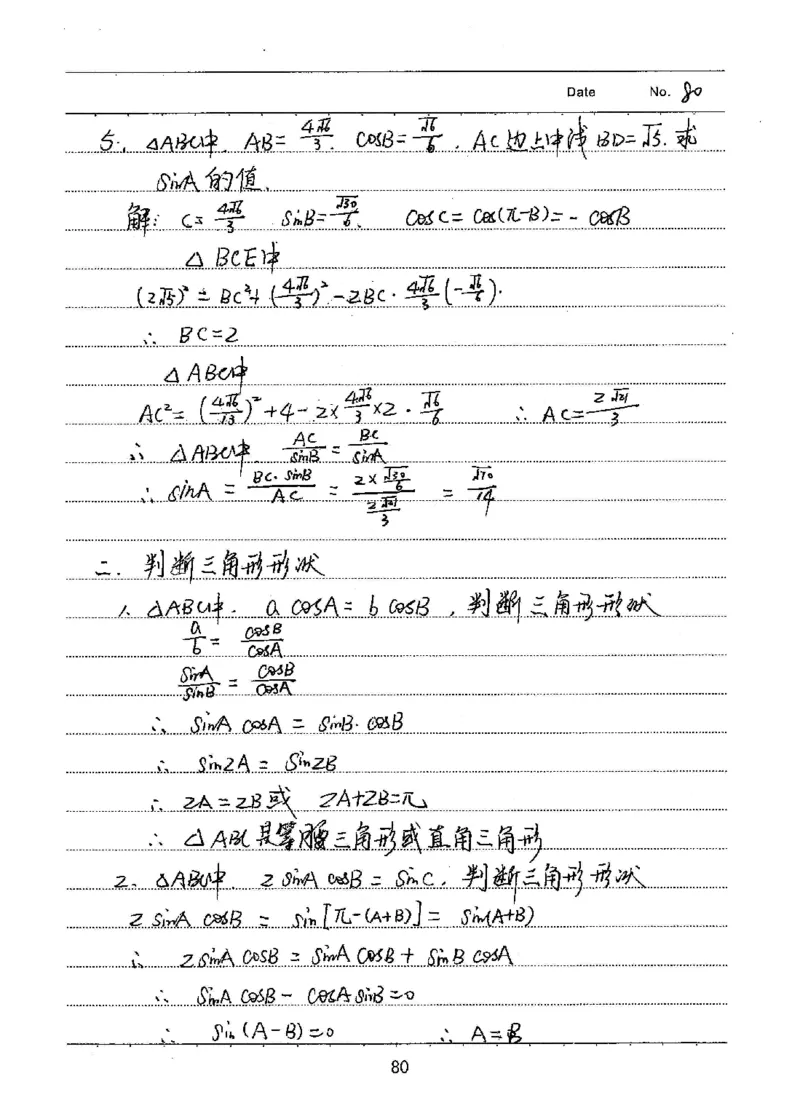 Date No. 80
5. △ABC中. AB= 4√6/3. cosB= √6/6, AC边上中线BD=√5. 求
sinA的值.
解: c= 4√6/3 sinB= √30/6. cosC= cos(π-B)= - cosB
△ BCE中
(2√5)² = BC²+(4√6/3)²-2BC·4√6/3(-√6/6).
∴ BC=2
△ABC中
AC²= (4√6/13)²+4-2×4√6/3×2·√6/6 ∴ AC= 2√21/3
∴ △ABC中. AC/sinB = BC/sinA
∴ sinA = BC·sinB/AC = (2×√30/6)/(2√21/3) = √70/14
二. 判断三角形形状
1. △ABC中. a cosA= b cosB, 判断三角形形状
a/b = cosB/cosA
sinA/sinB = cosB/cosA
∴ sinA cosA = sinB·cosB
∴ sin2A = sin2B
∴ 2A=2B或 2A+2B=π
∴ △ABC是等腰三角形或直角三角形
2. △ABC中. 2 sinA cosB = sinC. 判断三角形形状
2 sinA cosB = sin[π-(A+B)] = sin(A+B)
∴ 2sinA cosB = sinA cosB + sinB cosA
∴ sinA cosB - cosA sinB=0
∴ sin(A-B)=0 ∴ A=B
80